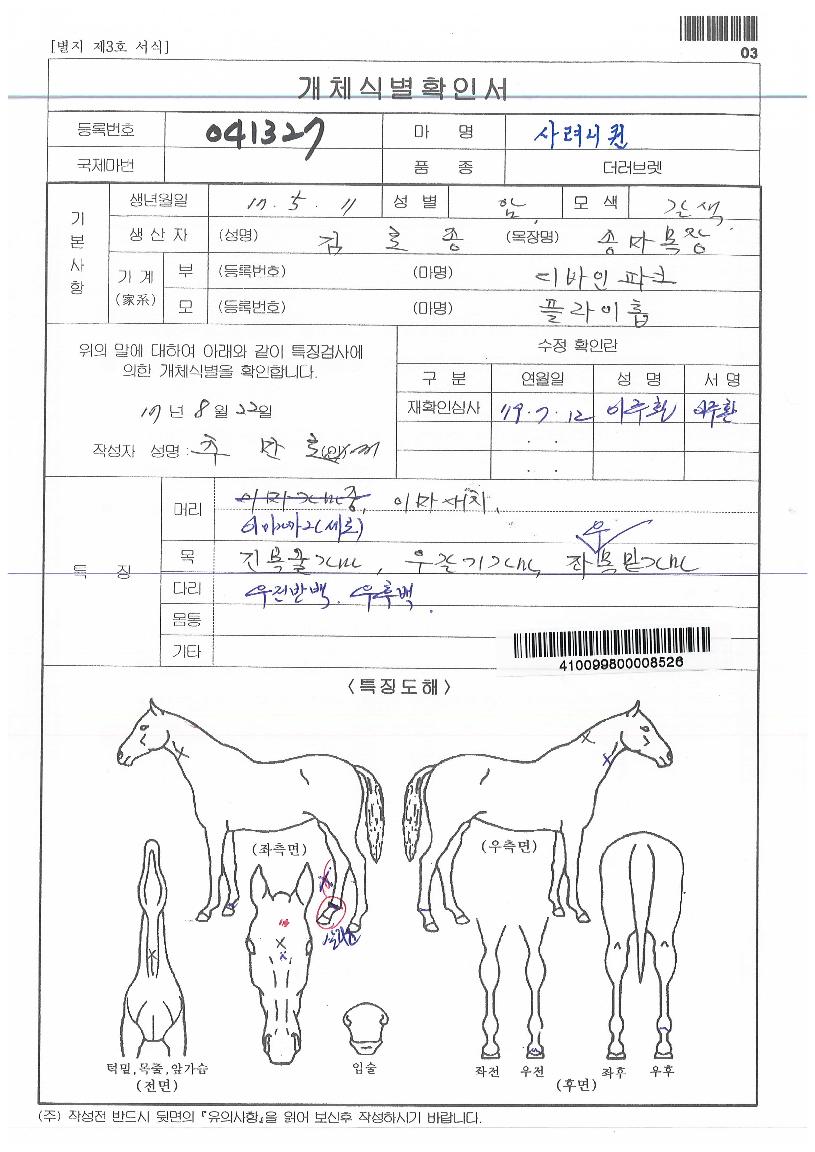 [별지 제3호 서식]
03
개체식별확인서
등록번호 041327 마 명 사려니퀸
국제마번 품 종 더러브렛
기본사항
생년월일 17. 5. 11 성 별 암 모 색 갈색
생 산 자 (성명) 김 호 종 (목장명) 송 마 목장
기 계 (家系)
부 (등록번호) (마명) 디바인파크
모 (등록번호) (마명) 플라이홉
위의 말에 대하여 아래와 같이 특징검사에
의한 개체식별을 확인합니다.
17 년 8 월 22 일
작성자 성명 :
수정 확인란
구 분 연월일 성 명 서 명
재확인심사 19. 7. 12 이주환 이주환
특 징
머리 이마새치,
이마가마2(세로)
목
다리 우전반백. 우후백.
몸통
기타
410099800008526
<특징도해>
(좌측면) (우측면)
턱밑,목줄,앞가슴
(전면)
입술
좌전 우전 좌후 우후
(후면)
(주) 작성전 반드시 뒷면의 『유의사항』을 읽어 보신후 작성하시기 바랍니다.